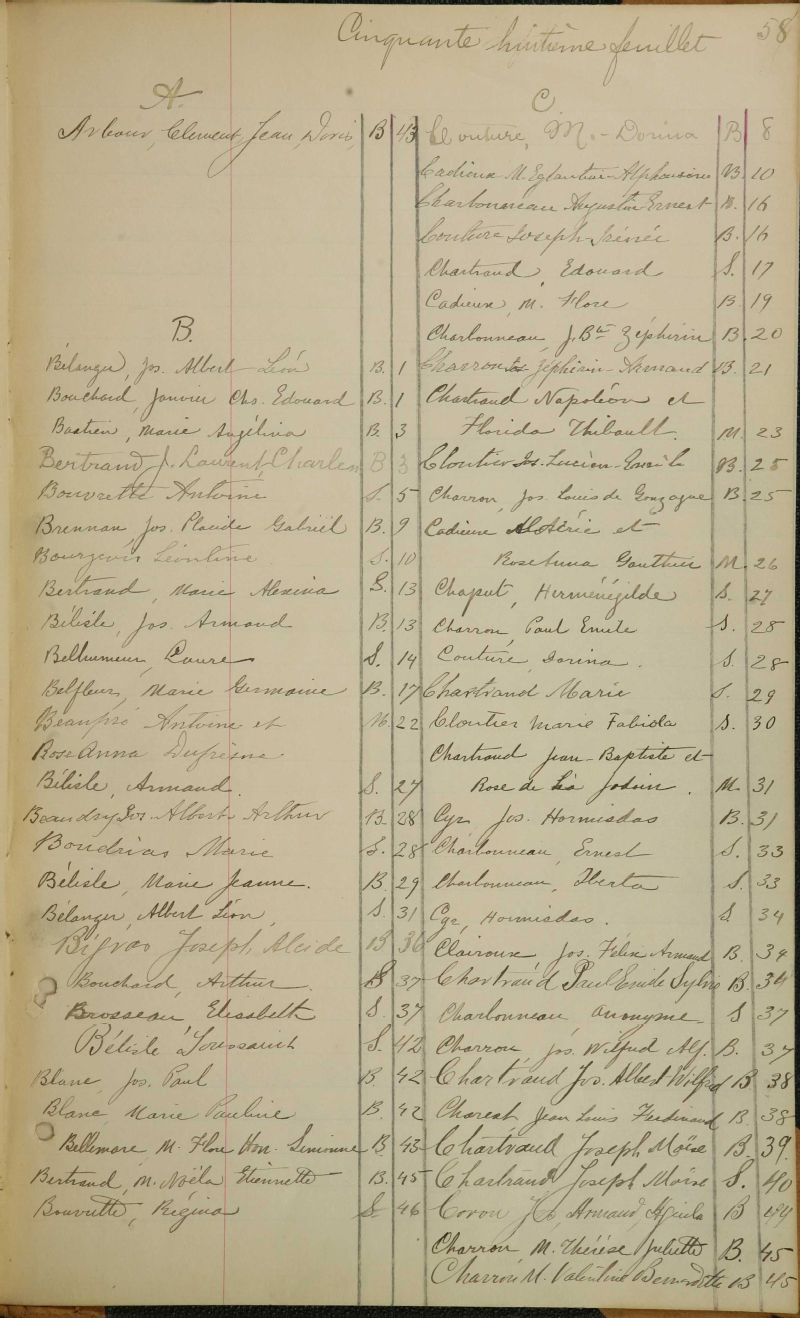 Cinquante huitième feuillet 58
A.
Arbour, Clement, Jean, Doris, B 43
B.
Bélanger, Jos. Albert Léon B. 1
Bouchard, Janvier Chs. Edouard B. 1
Bastien, Marie Angélina B. 3
Bertrand J. Laurent Charles B 3
Bouvrette Antoine S. 5
Brennan, Jos. Placide Gabriël B. 9
Bourgeois Léontine S. 10
Bertrand, Marie Alexina S. 13
Bélisle, Jos. Armand B. 13
Bellhumeur, Laure S. 14
Belfleur, Marie Germaine B. 17
Beaupré Antoine et M. 22
Rose Anna Dufresne
Bélisle, Armand. S. 27
Beaudry Jos. Albert Arthur B. 28
Boudrias Marie S. 28
Bélisle, Marie Jeanne. B. 29
Bélanger, Albert Léon, S. 31
Bigras Joseph Alcide B 36
Bouchard, Arthur. S 37
Brosseau Elisabeth S. 37
Bélisle Toussaint S. 42
Blanc, Jos. Paul B. 42
Blanc, Marie Pauline B. 42
Bellemare, M. Flore Hon. Simonne B. 43
Bertrand, M. Noëla Etiennette B. 45
Bouvrette, Régina S. 46
C
Couture, M.- Dorina B 8
Cadieux M. Eglantine-Alphonsine B. 10
Charbonneau Augustin Ernest B. 16
Couture Joseph Irénée B. 16
Chartrand, Edouard S. 17
Cadieux, M. Flore B. 19
Charbonneau, J. Bte Zéphirin B. 20
Charron Jos Zéphirin-Armand B. 21
Chartrand Napoléon et
Florida Thibault. M. 23
Cloutier Jos. Lucien-Emile B. 25
Charron, Jos. Louis de Gonzague B. 25
Cadieux et
Gauthier M. 26
Chaput, Herménégilde S. 27
Charron, Paul Emile S. 28
Couture, Dorina. S. 28
Chartrand Marie S. 29
Cloutier Marie Fabiola S. 30
Chartrand Jean-Baptiste et
Rose de Lia Jodoin. M. 31
Cyr Jos. Hormisdas B. 31
Charbonneau, Ernest S. 33
Charbonneau, Iberta S. 33
Cyr, Hormisdas. S 34
Clairoux, Jos. Félix Armand B. 34
Chartrand Paul Emile Sylvio B. 34
Charbonneau anonyme S 37
Charron, Jos. Wilfrid Alf. B. 37
Chartrand Jos. Albert Wilfrid B 38
Charest Jean Louis Ferdinand B. 38
Chartrand Joseph Moïse B. 39.
Chartrand Joseph Moïse S. 40
Coron Jos, Armand, Aguila B 44
Charron M. Thérèse Juliette B. 45
Charron M. Valentine Bernadette B 45